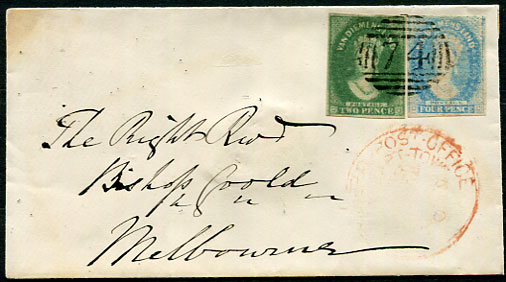 VAN DIEMENS LAND
POSTAGE
TWO PENCE
VAN DIEMENS LAND
POSTAGE
FOUR PENCE
74
POST-OFFICE
The Right Revd
Bishop Goold
Melbourne